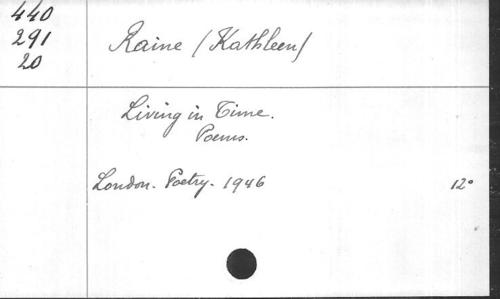 440
291
20
Raine (Kathleen)
Living in Time.
Poems.
London. Poetry. 1946 12°